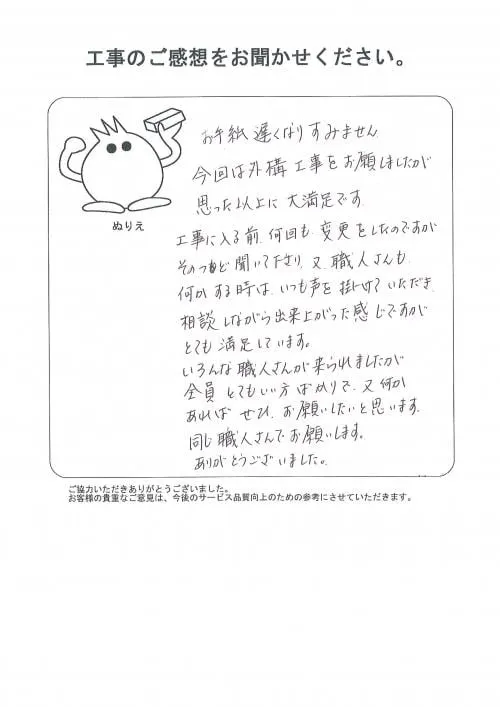 工事のご感想をお聞かせください。
お手紙遅くなりすみません
今回は外構工事をお願しましたが
思った以上に大満足です。
ぬりえ
工事に入る前、何回も変更をしたのですが
そのつど聞いて下さり、又、職人さんも、
何かする時は、いつも声を掛けていただき、
相談しながら出来上がった感じですが
とても満足しています。
いろんな職人さんが来られましたが
全員とてもいい方ばかりで、又何か
あればぜひ、お願いしたいと思います。
同じ職人さんでお願いします。
ありがとうございました。
ご協力いただきありがとうございました。
お客様の貴重なご意見は、今後のサービス品質向上のための参考にさせていただきます。